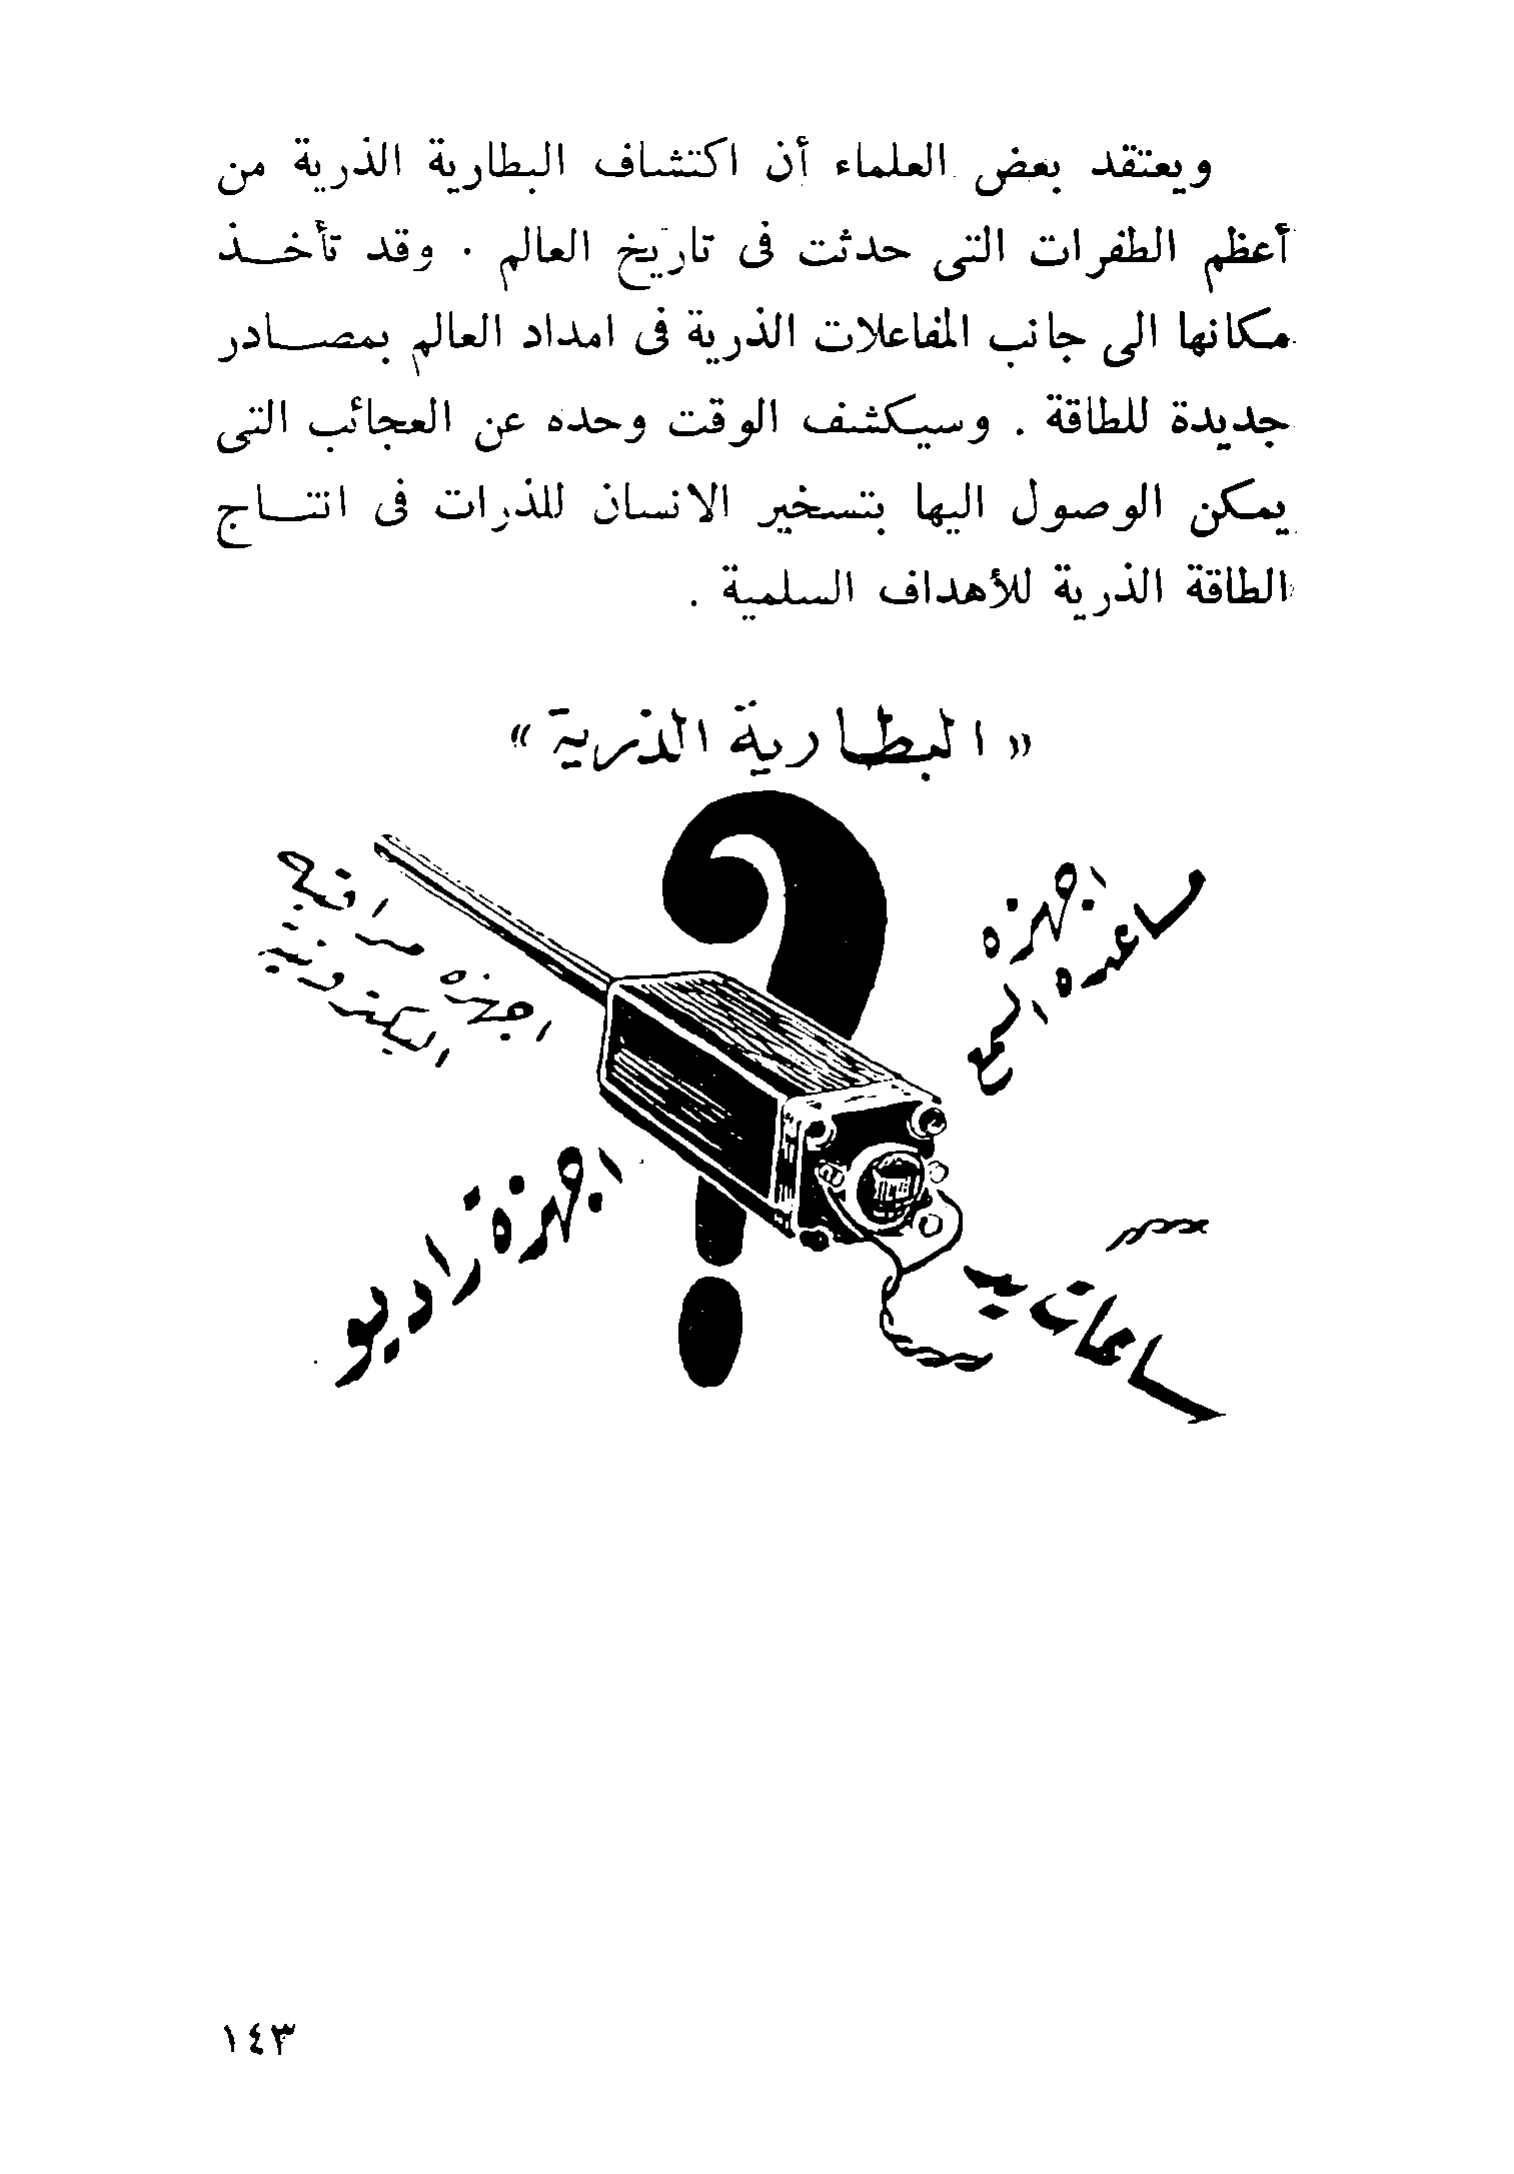 ويعتقد بعض العلماء أن اكتشاف البطارية الذرية من
أعظم الطفرات التى حدثت فى تاريخ العالم . وقد تأخــذ
مكانها الى جانب المفاعلات الذرية فى امداد العالم بمصــادر
جديدة للطاقة . وسيكشف الوقت وحده عن العجائب التى
يمكن الوصول اليها بتسخير الانسان للذرات فى انتــاج
الطاقة الذرية للأهداف السلمية .
« البطارية الذرية »
اجهزه
مساعده السمع
اجهزه مراقبة
اليكترونية
اجهزة راديو
ساعات يد
١٤٣